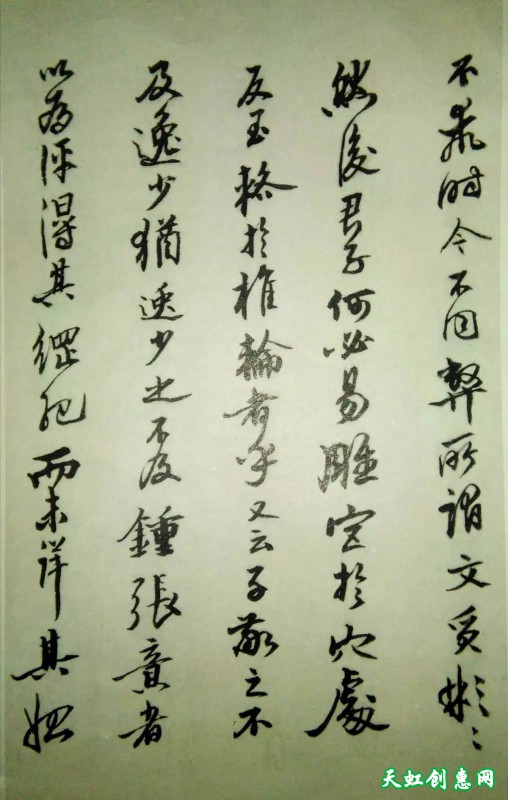 不乖時今不同弊所謂文質彬〻
然後君子何必易雕宮於穴處
反玉輅於椎輪者乎又云子敬之不
及逸少猶逸少之不及鍾張意者
以為評得其綱紀而未詳其始
天虹创惠网